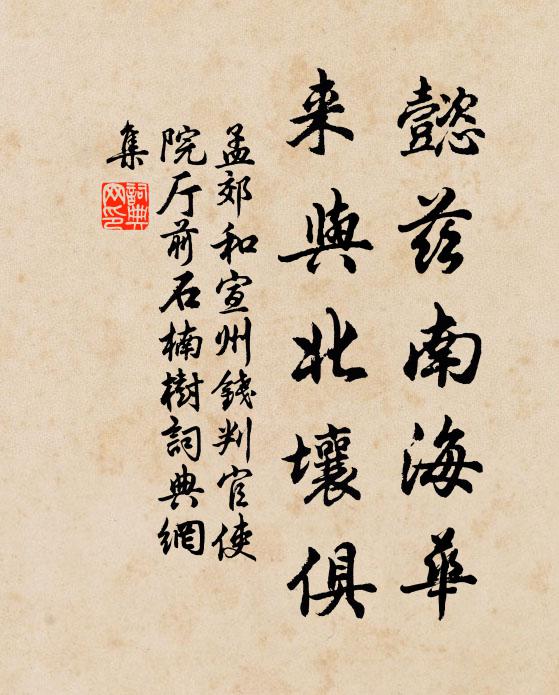 懿兹南海華
来與北壤俱
孟郊和宣州錢判官使
院厅前石楠樹詞典網
集
詞典
网印